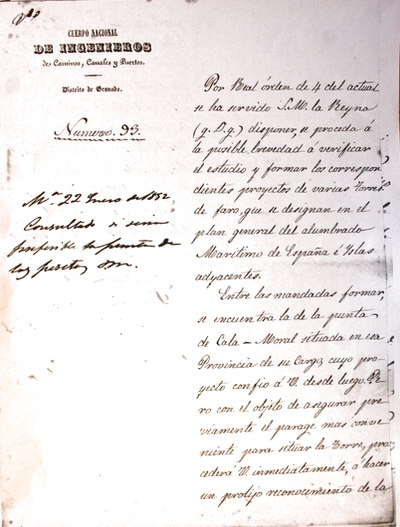 Vº
CUERPO NACIONAL
DE INGENIEROS
de Caminos, Canales y Puertos.
Distrito de Granada.
Numero. 93.
Mª 22 Enero de 1852
Consultado si seria
preferible la punta de
las
Por Real órden de 4 del actual
se ha servido S.M. la Reyna
(q. D. g.) disponer, se proceda á
la posible brevedad á verificar
el estudio y formar los correspon-
dientes proyectos de varias Torres
de faro, que se designan en el
plan general del alumbrado
Marítimo de España é Islas
adyacentes.
Entre las mandadas formar,
se encuentra la de la punta
de Cala-Moral situada en esa
Provincia de su Cargo, cuyo pro-
yecto confio á V. desde luego. Pe-
ro con el objeto de asegurar pre-
viamente el parage mas conve-
niente para situar la Torre, pro-
cederá V. inmediatamente, á hacer
un prolijo reconocimiento de la